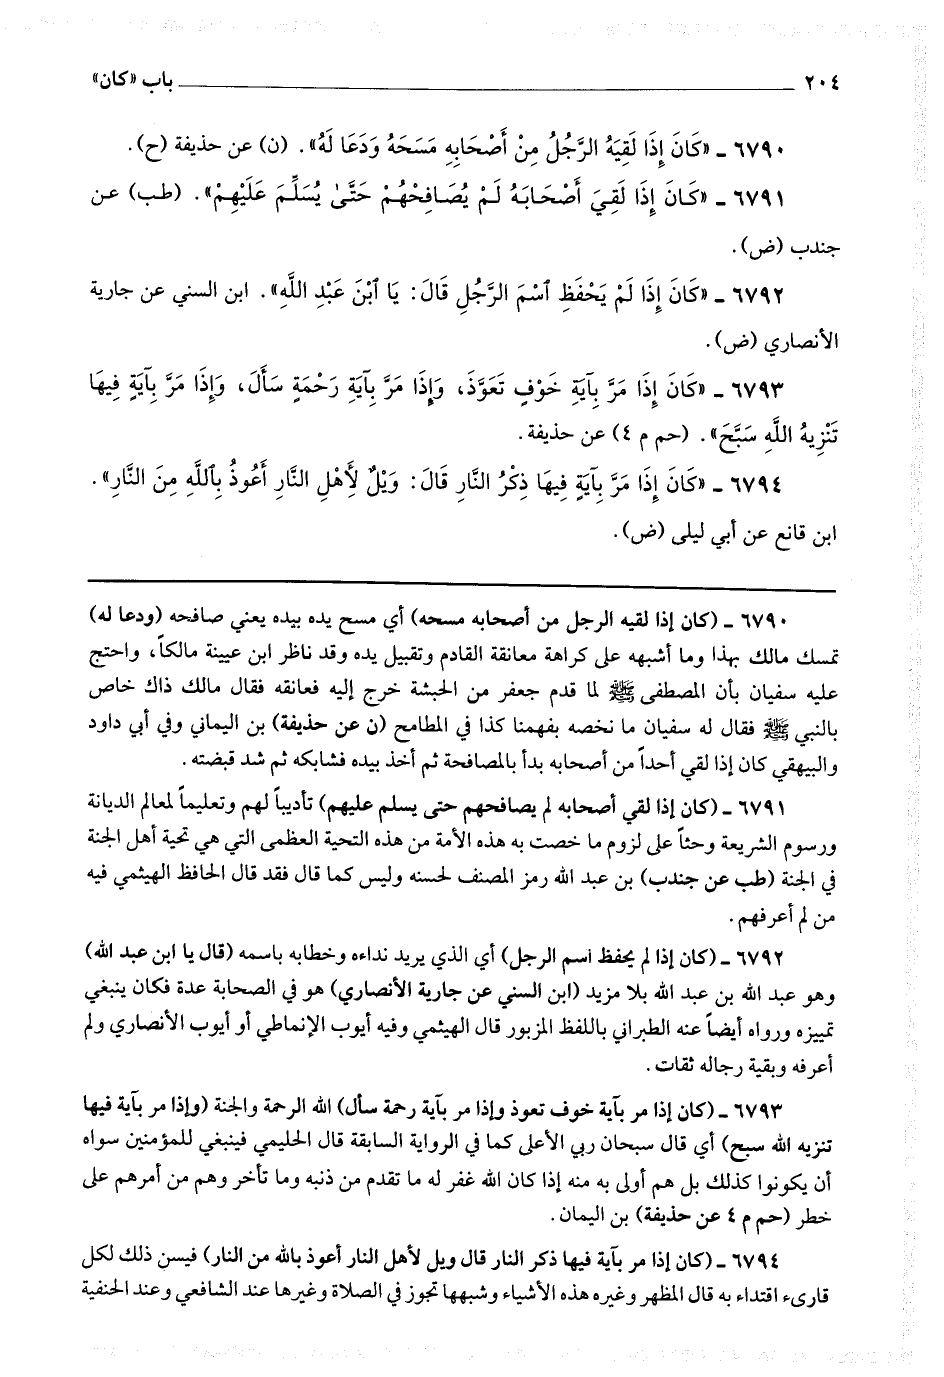 ٢٠٤ باب «كان»
٦٧٩٠ ـ «كَانَ إِذَا لَقِيَهُ الرَّجُلُ مِنْ أَصْحَابِهِ مَسَحَهُ وَدَعَا لَهُ». (ن) عن حذيفة (ح).
٦٧٩١ ـ «كَانَ إِذَا لَقِيَ أَصْحَابَهُ لَمْ يُصَافِحْهُمْ حَتَّىٰ يُسَلِّمَ عَلَيْهِمْ». (طب) عن
جندب (ض).
٦٧٩٢ ـ «كَانَ إِذَا لَمْ يَحْفَظِ ٱسْمَ الرَّجُلِ قَالَ: يَا ٱبْنَ عَبْدِ اللَّهِ». ابن السني عن جارية
الأنصاري (ض).
٦٧٩٣ ـ «كَانَ إِذَا مَرَّ بِآيَةِ خَوْفٍ تَعَوَّذَ، وَإِذَا مَرَّ بِآيَةِ رَحْمَةٍ سَأَلَ، وَإِذَا مَرَّ بِآيَةٍ فِيهَا
تَنْزِيهُ اللَّهِ سَبَّحَ». (حم م ٤) عن حذيفة.
٦٧٩٤ ـ «كَانَ إِذَا مَرَّ بِآيَةٍ فِيهَا ذِكْرُ النَّارِ قَالَ: وَيْلٌ لِأَهْلِ النَّارِ أَعُوذُ بِٱللَّهِ مِنَ النَّارِ».
ابن قانع عن أبي ليلى (ض).
٦٧٩٠ ـ (كان إذا لقيه الرجل من أصحابه مسحه) أي مسح يده بيده يعني صافحه (ودعا له)
تمسك مالك بهذا وما أشبهه على كراهة معانقة القادم وتقبيل يده وقد ناظر ابن عيينة مالكاً، واحتج
عليه سفيان بأن المصطفى ﷺ لما قدم جعفر من الحبشة خرج إليه فعانقه فقال مالك ذاك خاص
بالنبي ﷺ فقال له سفيان ما نخصه بفهمنا كذا في المطامح (ن عن حذيفة) بن اليماني وفي أبي داود
والبيهقي كان إذا لقي أحداً من أصحابه بدأ بالمصافحة ثم أخذ بيده فشابكه ثم شد قبضته.
٦٧٩١ ـ (كان إذا لقي أصحابه لم يصافحهم حتى يسلم عليهم) تأديباً لهم وتعليماً لمعالم الديانة
ورسوم الشريعة وحثاً على لزوم ما خصت به هذه الأمة من هذه التحية العظمى التي هي تحية أهل الجنة
في الجنة (طب عن جندب) بن عبد الله رمز المصنف لحسنه وليس كما قال فقد قال الحافظ الهيثمي فيه
من لم أعرفهم.
٦٧٩٢ ـ (كان إذا لم يحفظ اسم الرجل) أي الذي يريد نداءه وخطابه باسمه (قال يا ابن عبد الله)
وهو عبد الله بن عبد الله بلا مزيد (ابن السني عن جارية الأنصاري) هو في الصحابة عدة فكان ينبغي
تمييزه ورواه أيضاً عنه الطبراني باللفظ المزبور قال الهيثمي وفيه أيوب الإنماطي أو أيوب الأنصاري ولم
أعرفه وبقية رجاله ثقات.
٦٧٩٣ ـ (كان إذا مر بآية خوف تعوذ وإذا مر بآية رحمة سأل) الله الرحمة والجنة (وإذا مر بآية فيها
تنزيه الله سبح) أي قال سبحان ربي الأعلى كما في الرواية السابقة قال الحليمي فينبغي للمؤمنين سواه
أن يكونوا كذلك بل هم أولى به منه إذا كان الله غفر له ما تقدم من ذنبه وما تأخر وهم من أمرهم على
خطر (حم م ٤ عن حذيفة) بن اليمان.
٦٧٩٤ ـ (كان إذا مر بآية فيها ذكر النار قال ويل لأهل النار أعوذ بالله من النار) فيسن ذلك لكل
قارىء اقتداء به قال المظهر وغيره هذه الأشياء وشبهها تجوز في الصلاة وغيرها عند الشافعي وعند الحنفية